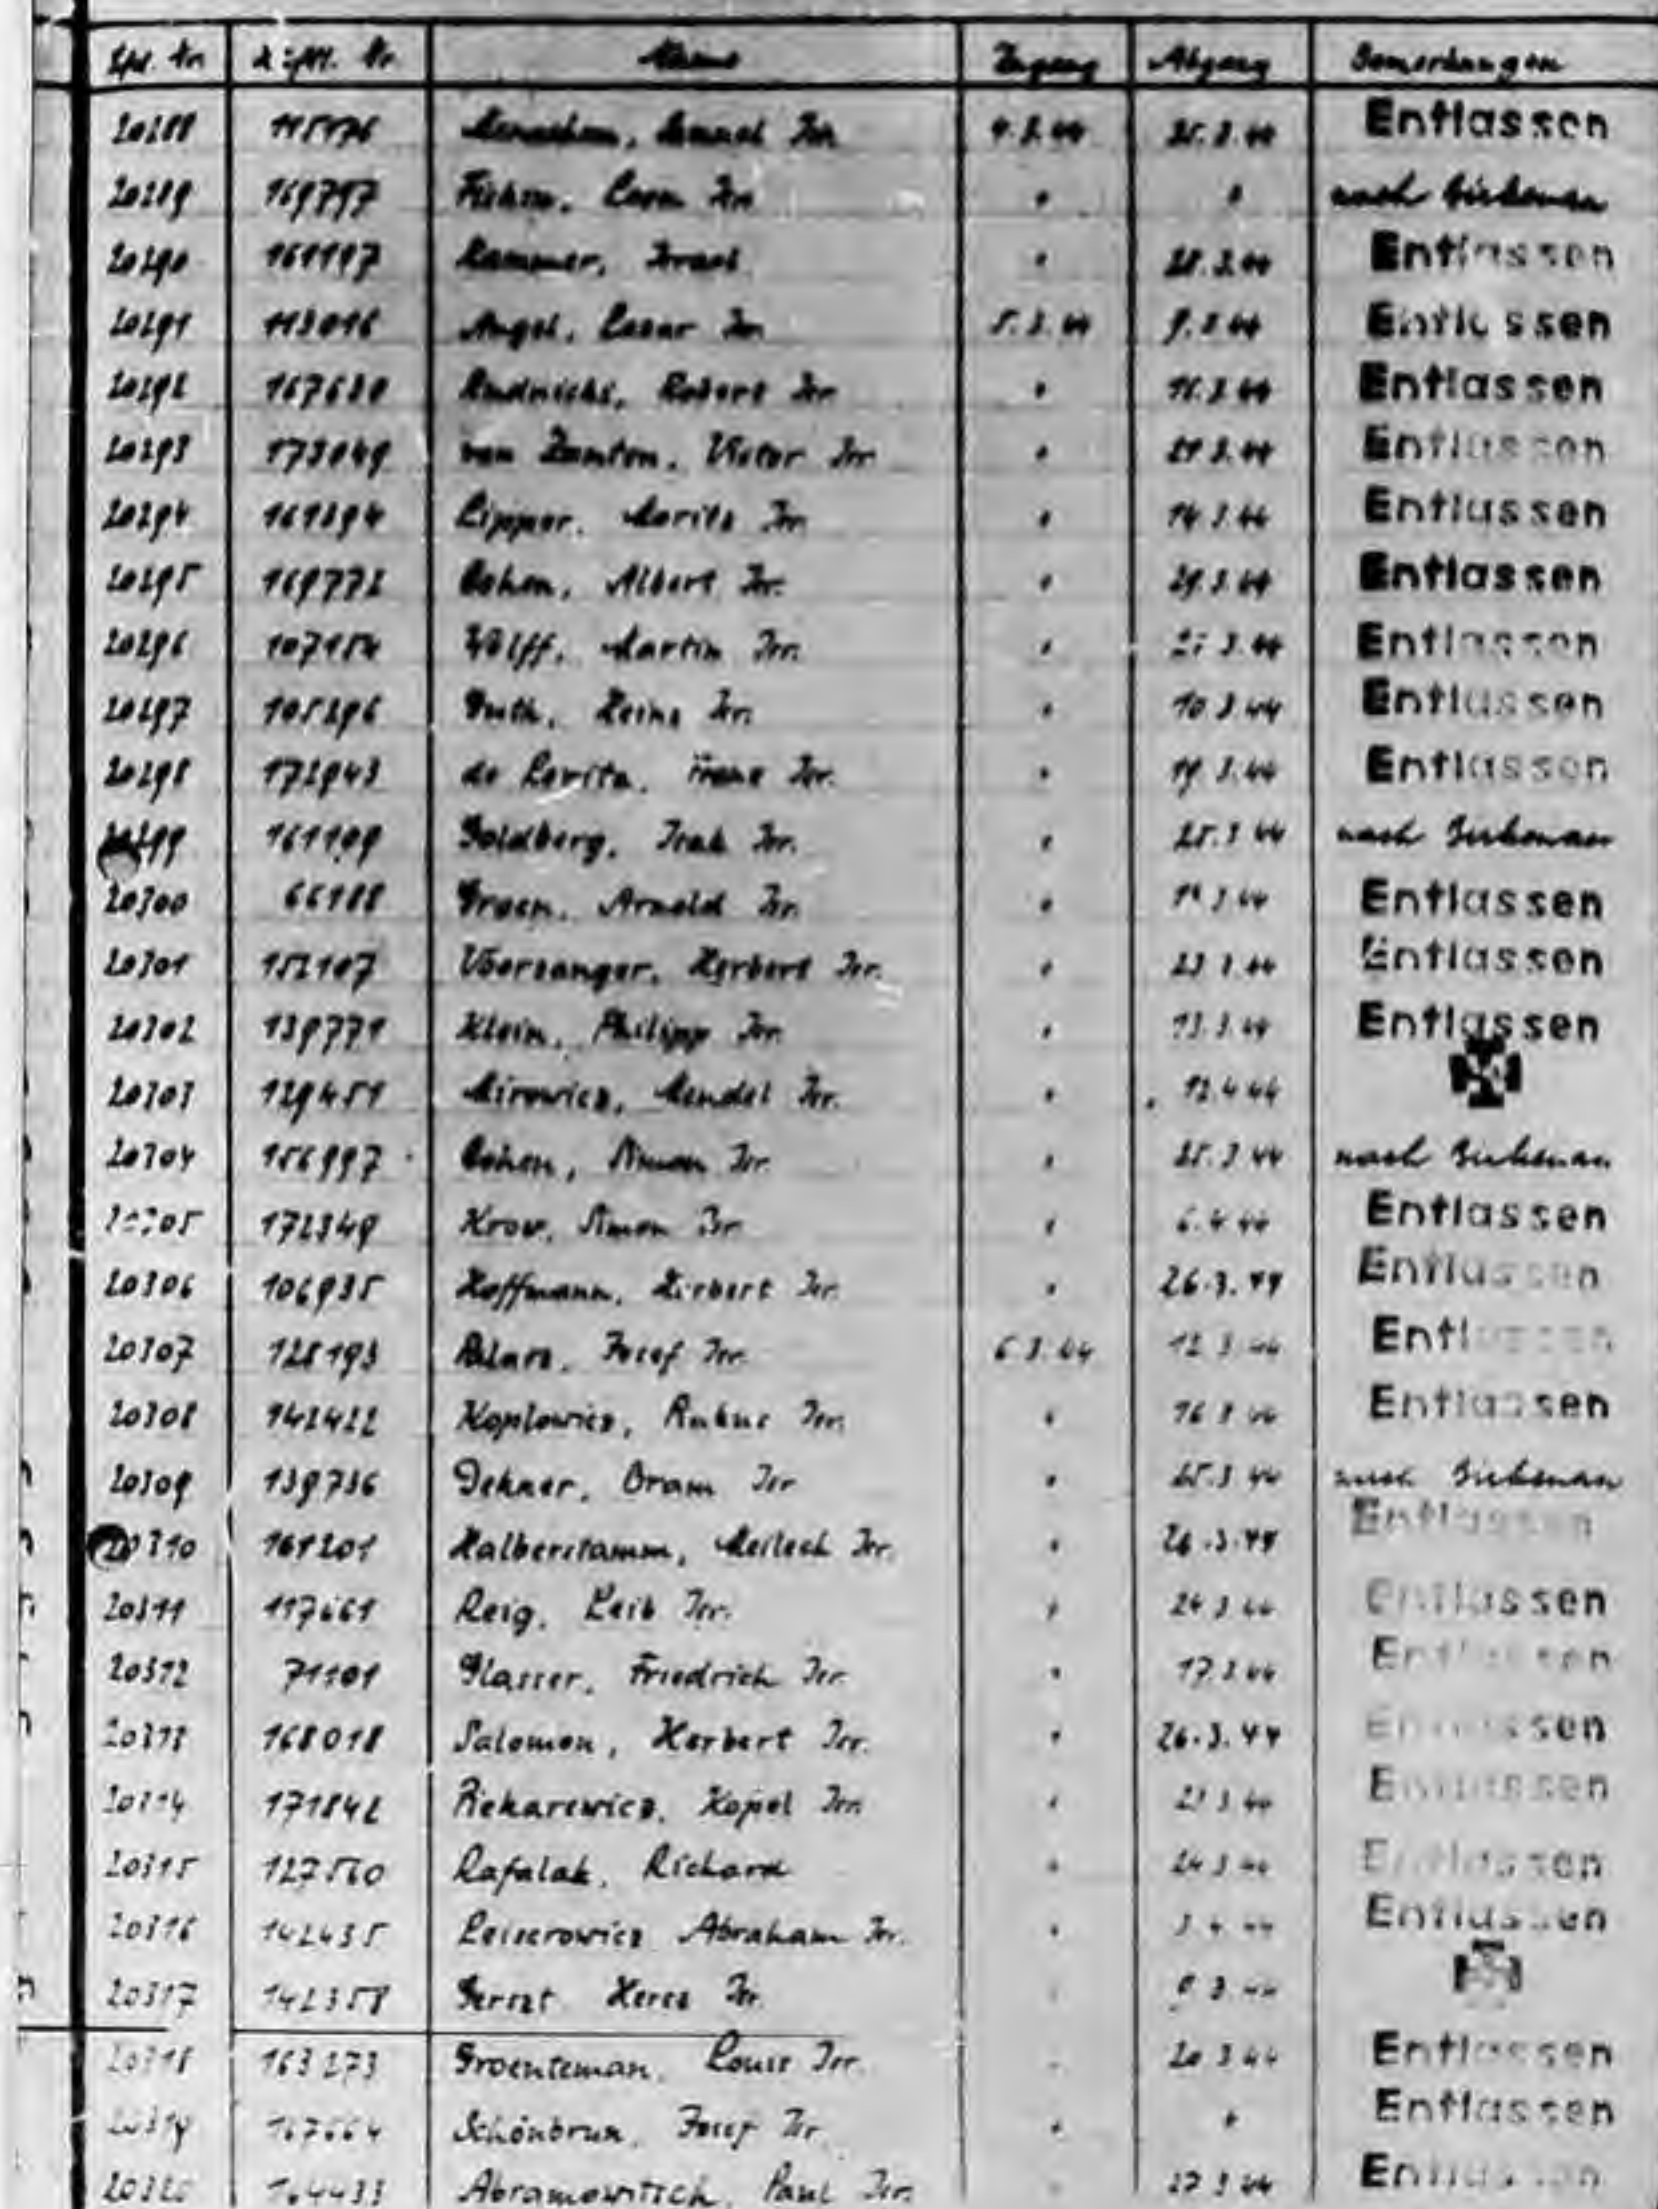 Lfd. Nr. Häftl. Nr. Name Zugang Abgang Bemerkungen
20288 115176 Isr. 4.3.44 25.3.44 Entlassen
20289 169797 Isr. " " nach Birkenau
20290 161197 Kammer, Israel " 28.3.44 Entlassen
20291 113016 Angel, Lazar Isr. 5.3.44 9.3.44 Entlassen
20292 Rudnicki, Robert Isr. " 16.3.44 Entlassen
20293 173049 van Victor Isr. " 21.3.44 Entlassen
20294 161394 Lipper, Moritz Isr. " 14.3.44 Entlassen
20295 169772 Cohen, Albert Isr. " 29.3.44 Entlassen
20296 107154 Wolff, Martin Isr. " 3.44 Entlassen
20297 105296 Guth, Heinz Isr. " 10.3.44 Entlassen
20298 172943 de Levita, Franz Isr. " 19.3.44 Entlassen
20299 161199 Goldberg, Isak Isr. " 25.3.44 nach Birkenau
20300 66188 Groen, Arnold Isr. " Entlassen
20301 152107 Vorsanger, Herbert Isr. " 23.3.44 Entlassen
20302 139771 Klein, Philipp Isr. " 13.3.44 Entlassen
20303 129451 Mirowicz, Mendel Isr. " 12.4.44
20304 156997 Cohen, Simon Isr. " 25.3.44 nach Birkenau
20305 172349 Krow, Simon Isr. " 6.4.44 Entlassen
20306 106935 Hoffmann, Herbert Isr. " 26.3.44 Entlassen
20307 128193 Josef Isr. 6.3.44 12.3.44 Entlassen
20308 142422 Koplowicz, Isr. " 16.3.44 Entlassen
20309 139736 Dekner, Oram Isr. " 25.3.44 nach Birkenau
20310 161201 Halberstamm, Meilech Isr. " 26.3.44 Entlassen
20311 117661 Reig, Leib Isr. " 24.3.44 Entlassen
20312 71101 Glasser, Friedrich Isr. " 17.3.44 Entlassen
20313 168018 Salomon, Herbert Isr. " 26.3.44 Entlassen
20314 171842 Piekarewicz, Kopel Isr. " 23.3.44 Entlassen
20315 127560 Rafalak, Richard " 24.3.44 Entlassen
20316 142435 Leiserowicz Abraham Isr. " 3.4.44 Entlassen
20317 142358 Gerszt Hersz Isr.
20318 163273 Groenteman, Louis Isr. " 20.3.44 Entlassen
20319 167664 Schönbrun, Josef Isr. " " Entlassen
20320 Abramowitsch, Paul Isr. " 27.3.44 Entlassen